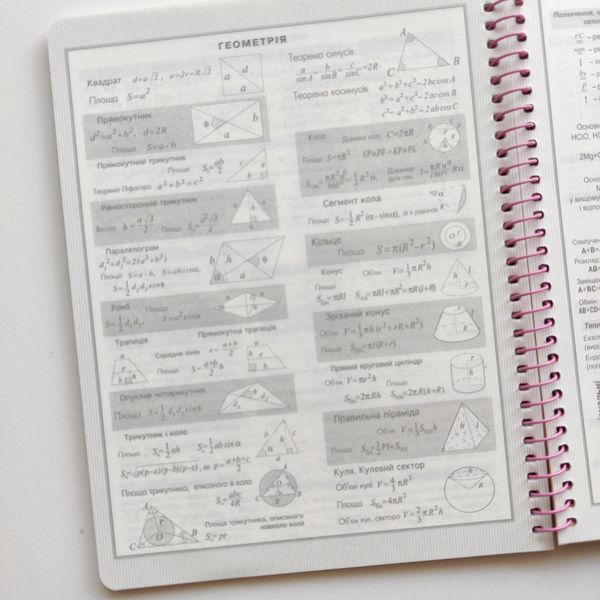 ГЕОМЕТРІЯ
Квадрат d=a√2, a=2r=R√2
Площа S=a²
Прямокутник
d²=a²+b², d=2R
Площа S=a·b
Прямокутний трикутник Площа S=ab/2
Теорема Піфагора a²+b²=c²
Рівносторонній трикутник
Висота h=a√3/2 Площа S=a²√3/4
Паралелограм
d₁²+d₂²=2(a²+b²)
Площа S=a·h, S=absinα,
S=½d₁d₂sinϕ
Ромб
S=½d₁d₂, Площа S=a²sinα
Трапеція Прямокутна трапеція
Середня лінія e=a+b/2
Площа S=a+b/2 h
Опуклий чотирикутник
Площа S=½d₁d₂sinϕ
Трикутник і коло
Площа S=½ah S=½absinα
S=√p(p-a)(p-b)(p-c), де p=a+b+c/2
Площа трикутника, вписаного в коло
S=abc/4R
Площа трикутника, описаного
навколо кола
S=pr
Теорема синусів
a/sinA=b/sinB=c/sinC=2R
Теорема косинусів a²=b²+c²-2bccosA
b²=a²+c²-2accosB
c²=a²+b²-2abcosC
Коло Довжина кола C=2πR
Площа S=πR² EP×PF=KP×PL
Сегмент кола
Площа S=½R²(α-sinα), α в радіанах
Кільце
Площа S=π(R²-r²)
Конус Об'єм V=⅓πR²h
Площа
Sбіч=πRl Sпов=πRl+πR²=πR(l+R)
Зрізаний конус
Об'єм V=⅓πh(r²+rR+R²)
Площа Sбіч=πl(R+r)
Прямий круговий циліндр
Об'єм V=πr²h Площа
Sбіч=2πRh Sпов=2πR(h+R)
Правильна піраміда
Об'єм V=⅓Sоснh
Площа
Куля, Кулевий сектор
Об'єм кулі V=4/3πR³
Площа S=4πR²
Об'єм кул. сектора V=⅔πR²h
Позначення, а
2Mg+C
у вищому
і відпо
A+B=
Розклад
AB=
A+BC=
Обмін:
AB+CD=
Тепл
(виді